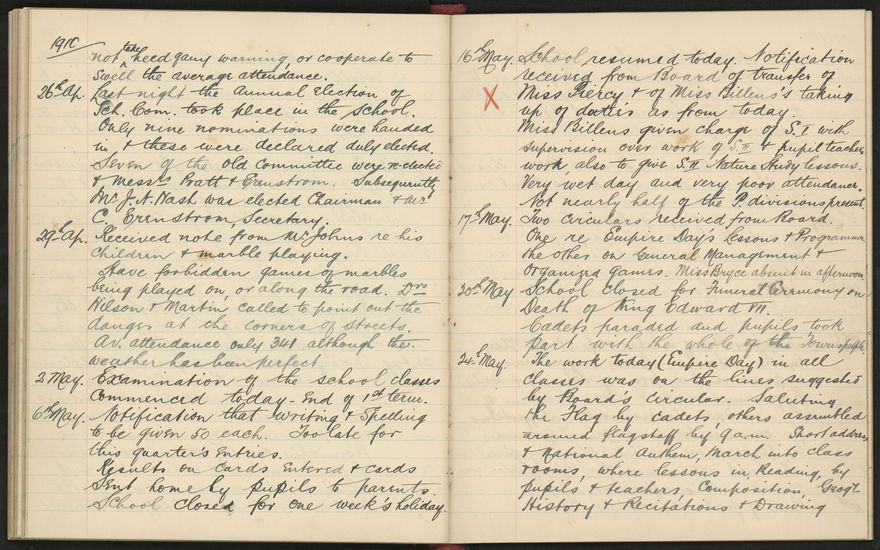 1910
not take heed gang warning, or cooperate to
swell the average attendance.
26th Ap. Last night the annual Election of
Sch. Com. took place in the School.
Only nine nominations were handed
in, & these were declared duly elected.
Seven of the old Committee were re-elected
& Messrs Pratt & Erenstrom. Subsequently
Mr J. N. Nash was elected Chairman & Mr
C. Erenstrom, Secretary.
29th Ap. Received note from Mr Johns re his
children & marble playing.
Have forbidden games of marbles
being played on, or along the road. Drs
Wilson & Martin called to point out the
danger at the corners of streets.
Av. attendance only 341 although the
weather has been perfect.
2 May. Examination of the school classes
commenced today - End of 1st term.
6th May. Notification that Writing & Spelling
to be given 50 each. Too late for
this quarter's entries.
Results on cards entered & cards
sent home by pupils to parents.
School closed for one week's holiday.
16th May. School resumed today. Notification
received from Board of transfer of
X Miss Piercy & of Miss Billens's taking
up of duties as from today.
Miss Billens given charge of S.I with
supervision over work of S.II & pupil teachers
work, also to give S.II Nature Study lessons.
Very wet day and very poor attendance.
Not nearly half of the P. divisions present.
17th May. Two circulars received from Board.
One re Empire Day's Lessons & Programme
the other on General Management &
Organized games. Miss Bryce absent in afternoon
20th May School closed for Funeral Ceremony on
Death of King Edward VII.
Cadets paraded and pupils took
part with the whole of the Townspeople.
24th May. The work today (Empire Day) in all
classes was on the lines suggested
by Board's Circular. Saluting
the Flag by cadets, others assembled
around flagstaff by 9 a.m. Short address
& National Anthem, March into class
rooms, where lessons in Reading, by
pupils & teachers, Composition, Geogy.
History & Recitations & Drawing